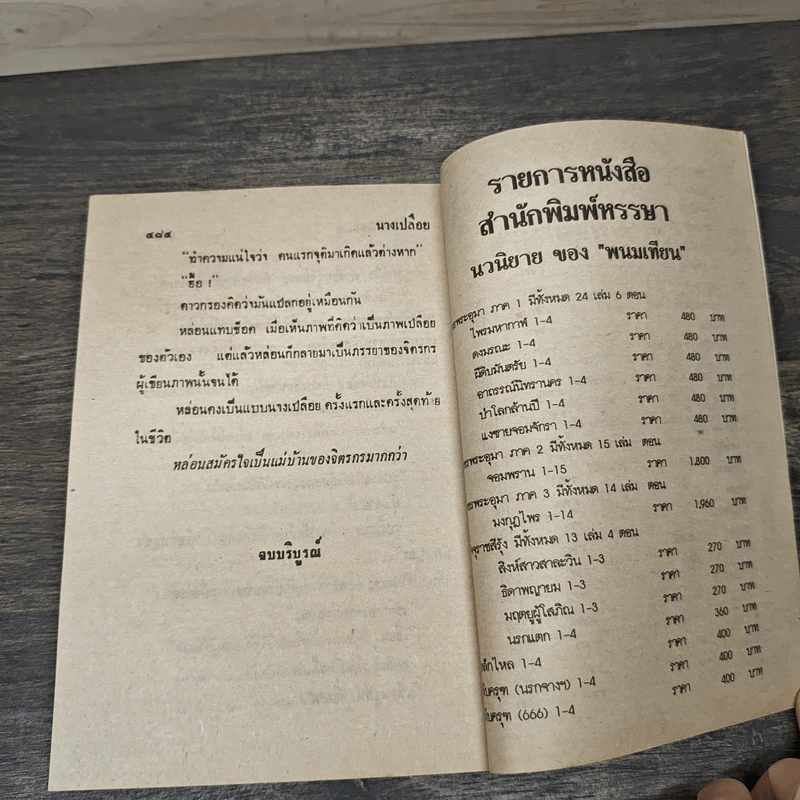 ๔๘๔ นางเปลือย
"ทำความแน่ใจว่า คนแรกจุติมาเกิดแล้วต่างหาก"
"ฮื้อ !"
ดาวกรองคิดว่ามันแปลกอยู่เหมือนกัน
หล่อนแทบช็อค เมื่อเห็นภาพที่คิดว่าเป็นภาพเปลือย
ของตัวเอง แต่แล้วหล่อนก็กลายมาเป็นภรรยาของจิตรกร
ผู้เขียนภาพนั้นจนได้
หล่อนคงเป็นแบบนางเปลือย ครั้งแรกและครั้งสุดท้าย
ในชีวิต
หล่อนสมัครใจเป็นแม่บ้านของจิตรกรมากกว่า
จบบริบูรณ์
รายการหนังสือ
สำนักพิมพ์หรรษา
นวนิยาย ของ "พนมเทียน"
พระอุมา ภาค 1 มีทั้งหมด 24 เล่ม 6 ตอน
ไพรมหากาฬ 1-4 ราคา 480 บาท
ดงมรณะ 1-4 ราคา 480 บาท
ผีดิบมันตรัย 1-4 ราคา 480 บาท
อาถรรณ์นิทรานคร 1-4 ราคา 480 บาท
ป่าโลกล้านปี 1-4 ราคา 480 บาท
แงซายจอมจักรา 1-4 ราคา 480 บาท
พระอุมา ภาค 2 มีทั้งหมด 15 เล่ม ตอน
จอมพราน 1-15 ราคา 1,800 บาท
พระอุมา ภาค 3 มีทั้งหมด 14 เล่ม ตอน
มงกุฎไพร 1-14 ราคา 1,960 บาท
มีทั้งหมด 13 เล่ม 4 ตอน
สิงห์สาวสาละวิน 1-3 ราคา 270 บาท
ธิดาพญายม 1-3 ราคา 270 บาท
มฤตยูผู้โสภิณ 1-3 ราคา 270 บาท
นรกแตก 1-4 ราคา 360 บาท
เล็กไหล 1-4 ราคา 400 บาท
(นรกจางฯ) 1-4 ราคา 400 บาท
(666) 1-4 ราคา 400 บาท